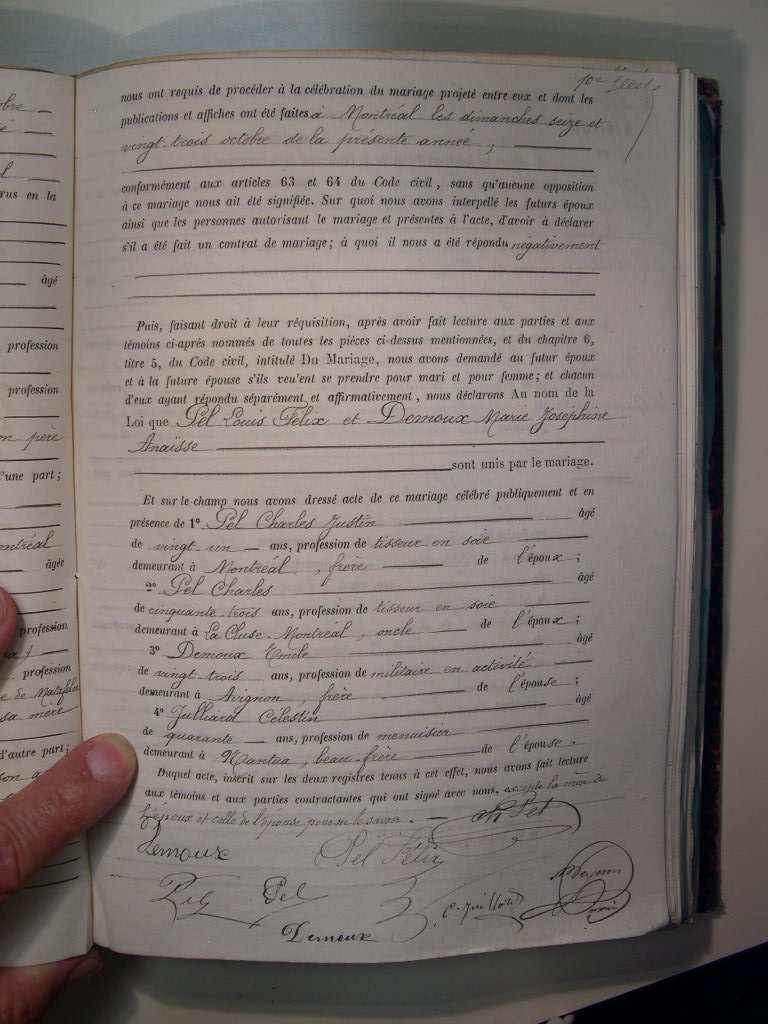 nous ont requis de procéder à la célébration du mariage projeté entre eux et dont les
publications et affiches ont été faites à Montréal les dimanches seize et
vingt-trois octobre de la présente année ;
conformément aux articles 63 et 64 du Code civil, sans qu'aucune opposition
à ce mariage nous ait été signifiée. Sur quoi nous avons interpellé les futurs époux
ainsi que les personnes autorisant le mariage et présentes à l'acte, d'avoir à déclarer
s'il a été fait un contrat de mariage ; à quoi il nous a été répondu negativement
Puis, faisant droit à leur réquisition, après avoir fait lecture aux parties et aux
témoins ci-après nommés de toutes les pièces ci-dessus mentionnées, et du chapitre 6,
titre 5, du Code civil, intitulé Du Mariage, nous avons demandé au futur époux
et à la future épouse s'ils veulent se prendre pour mari et pour femme ; et chacun
d'eux ayant répondu séparément et affirmativement, nous déclarons Au nom de la
Loi que Pel Louis Félix et Demoux Marie Joséphine
Anaïsse
sont unis par le mariage.
Et sur-le-champ nous avons dressé acte de ce mariage célébré publiquement et en
présence de 1° Pel Charles Justin âgé
de vingt un ans, profession de tisseur en soie
demeurant à Montréal, frère de l'époux ;
2° Pel Charles âgé
de cinquante-trois ans, profession de tisseur en soie
demeurant à La Cluse-Montréal, oncle de l'époux ;
3° Demoux Emile âgé
de vingt trois ans, profession de militaire en activité
demeurant à Avignon, frère de l'épouse ;
4° Julliard Célestin âgé
de quarante ans, profession de menuisier
demeurant à Nantua, beau-frère de l'épouse.
Duquel acte, inscrit sur les deux registres tenus à cet effet, nous avons fait lecture
aux témoins et aux parties contractantes qui ont signé avec nous, excepté la mère de
l'époux et celle de l'épouse pour ne le savoir.
Ch Pel
Demoux Pel Félix
Pel
C. Juillard
Demoux
rus en la
âgé
profession
profession
père
d'une part ;
ontréal
âgée
profession
profession
sa mère
d'autre part ;